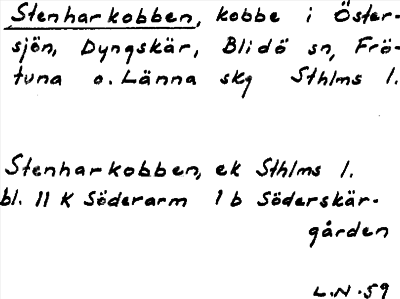 Stenharkobben, kobbe i Öster-
sjön, Dyngskär, Blidö sn, Frö-
tuna o. Länna skg Sthlms l.
Stenharkobben, ek Sthlms l.
bl. 11 K Söderarm 1 b Söderskär-
gården
L.N. 59